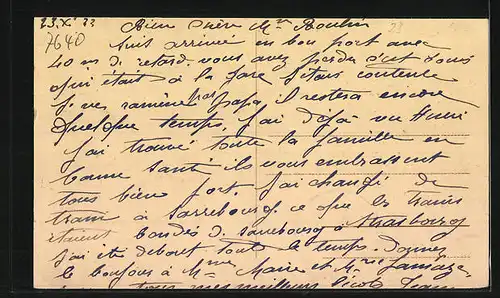 23. XI 23 Bien chère Mme Boulin 23
7640 suis arrivée en bon port avec
40 m de retard. vous avez perdu c'est
qui était à la gare j'étais contente
Je vais ramener pas papa, il restera encore
quelque temps. J'ai déjà vu Henri
j'ai trouvé toute la famille en
bonne santé ils vous embrassent
tous bien fort j'ai changé de
train à Sarrebourg ce que les trains
étaient bondés de Sarrebourg à Strasbourg
j'ai été debout tout le temps. Donnez
le bonjour à Mme Marie et Mme
tous mes meilleurs